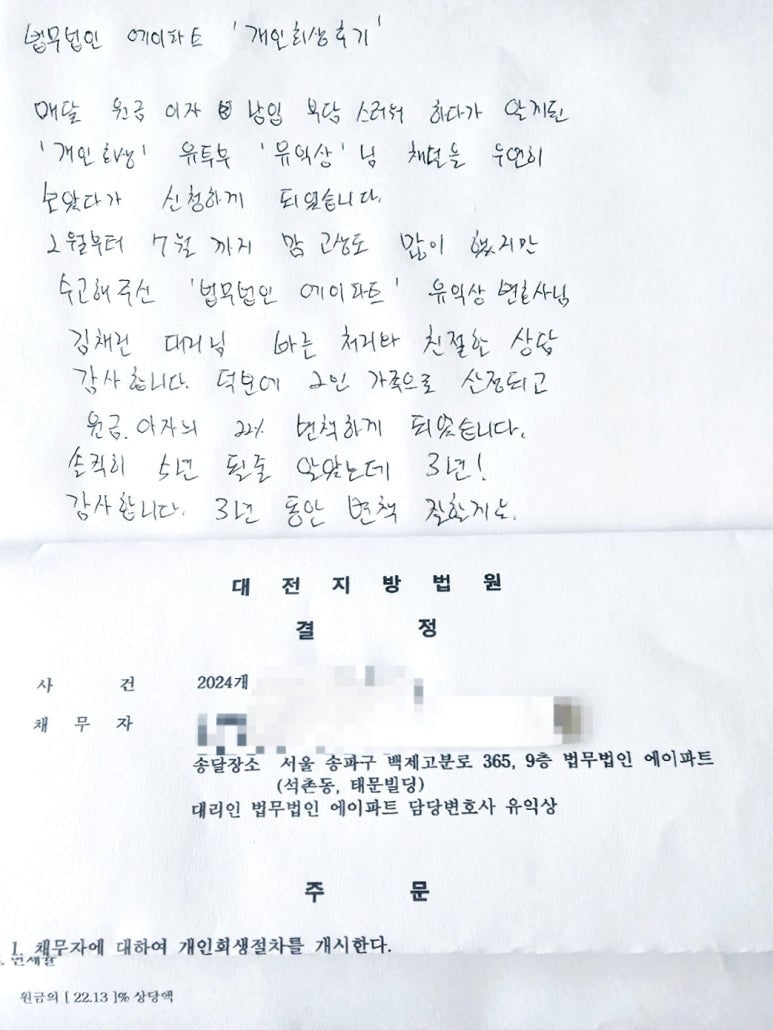 법무법인 에이파트 '개인회생후기'
매달 원금 이자 납입 부담 스러워 하다가 알게된
'개인회생' 유투부 '유익상' 님 채널을 우연히
보았다가 신청하게 되었습니다.
2월부터 7월 까지 맘 고생도 많이 했지만
수고해주신 '법무법인 에이파트' 유익상 변호사님
대리님 빠른 처리와 친절한 상담
감사합니다. 덕분에 2인 가족으로 산정되고
원금.이자의 22% 변책하게 되었습니다.
솔직히 5년 될줄 알았는데 3년!
감사합니다. 3년 동안 변책 잘할게요.
대 전 지 방 법 원
결 정
사 건 2024개
채 무 자
송달장소 서울 송파구 백제고분로 365, 9층 법무법인 에이파트
(석촌동, 태문빌딩)
대리인 법무법인 에이파트 담당변호사 유익상
주 문
1. 채무자에 대하여 개인회생절차를 개시한다.
원금의 [ 22.13 ]% 상당액